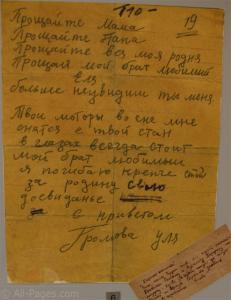 110-
19
Прощайте Мама
Прощайте Папа
Прощайте вся моя родня
Прощай мой брат любимый
Еля
больше неувидиш ты меня.
Твои моторы во сне мне
снятся
твой стан
в глазах всегда стоит
мой брат любимый
я погибаю крепче
за родину свою
досвиданье
с приветом
Громова Уля
© All-Pages.com